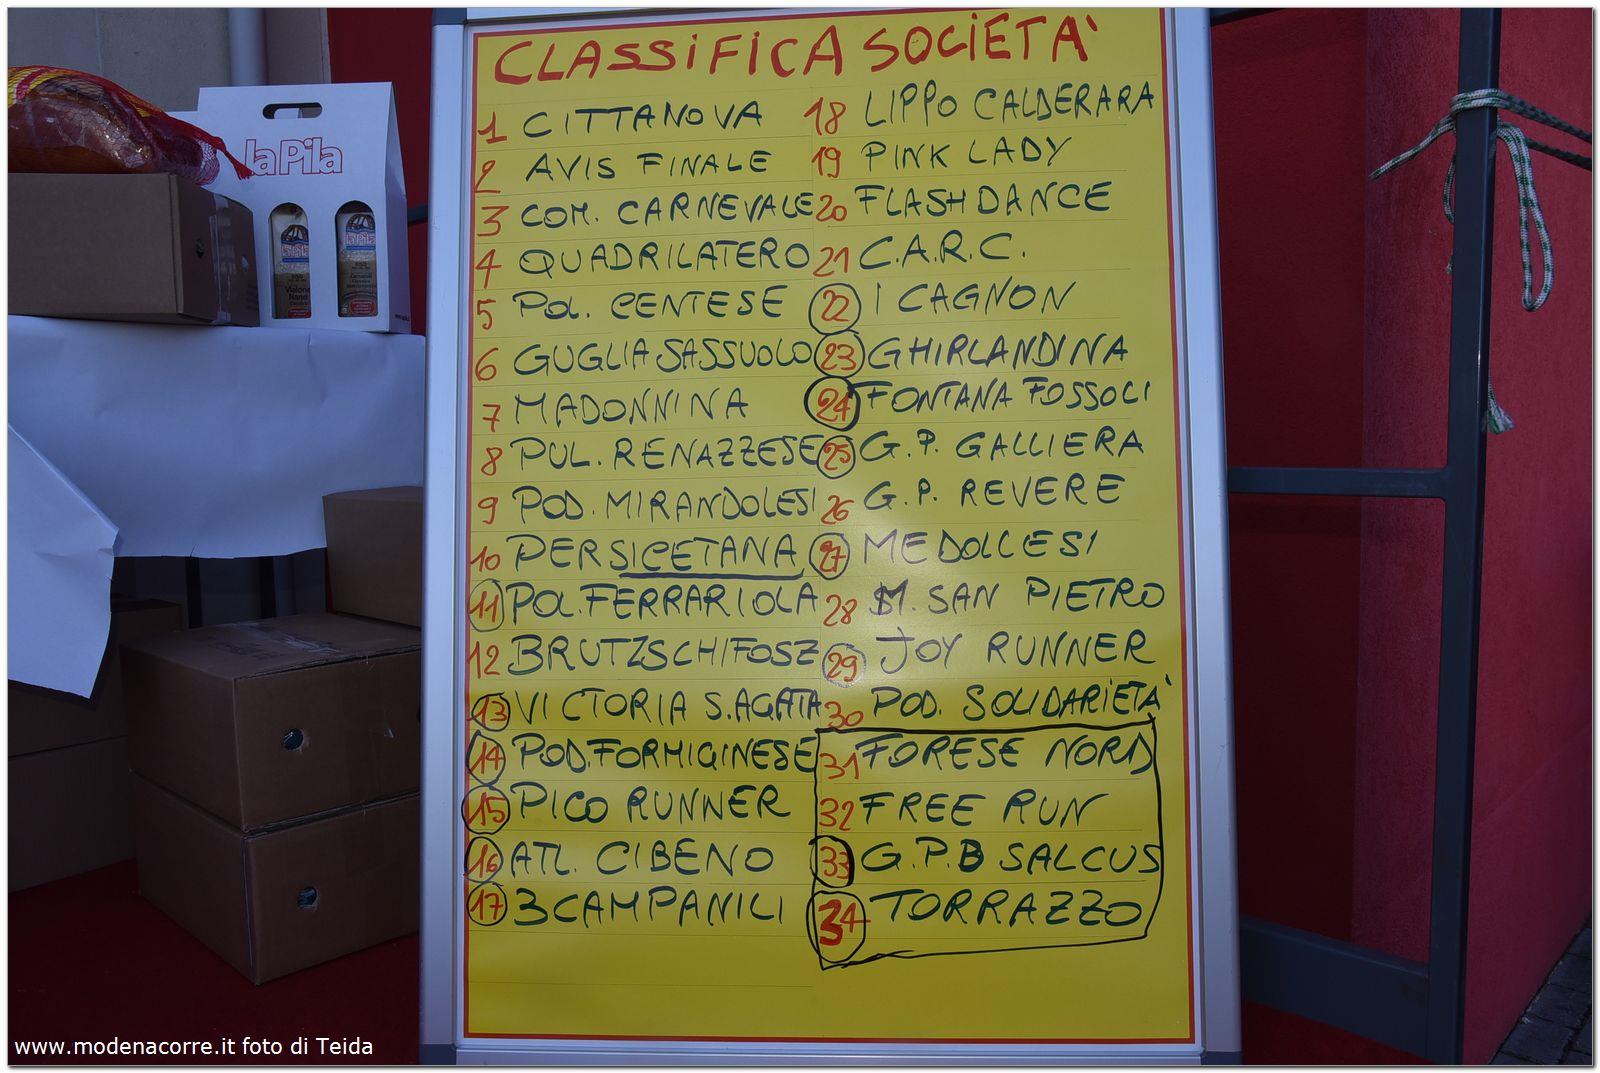 CLASSIFICA SOCIETA'
1 CITTANOVA
2 AVIS FINALE
3 COM. CARNEVALE
4 QUADRILATERO
5 POL. CENTESE
6 GUGLIA SASSUOLO
7 MADONNINA
8 PUL. RENAZZESE
9 POD. MIRANDOLESI
10 PERSICETANA
11 POL. FERRARIOLA
12 BRUTZSCHIFOSZ
13 VICTORIA S. AGATA
14 POD. FORMIGINESE
15 PICO RUNNER
16 ATL. CIBENO
17 3 CAMPANILI
18 LIPPO CALDERARA
19 PINK LADY
20 FLASHDANCE
21 C.A.R.C.
22 I CAGNON
23 GHIRLANDINA
24 FONTANA FOSSOLI
25 G.P. GALLIERA
26 G.P. REVERE
27 MEDOLLESI
28 M. SAN PIETRO
29 JOY RUNNER
30 POD. SOLIDARIETA'
31 FORESE NORD
32 FREE RUN
33 G.P.B SALCUS
34 TORRAZZO
la Pila
la Pila
Vialone
Nano
la Pila
www.modenacorre.it foto di Teida